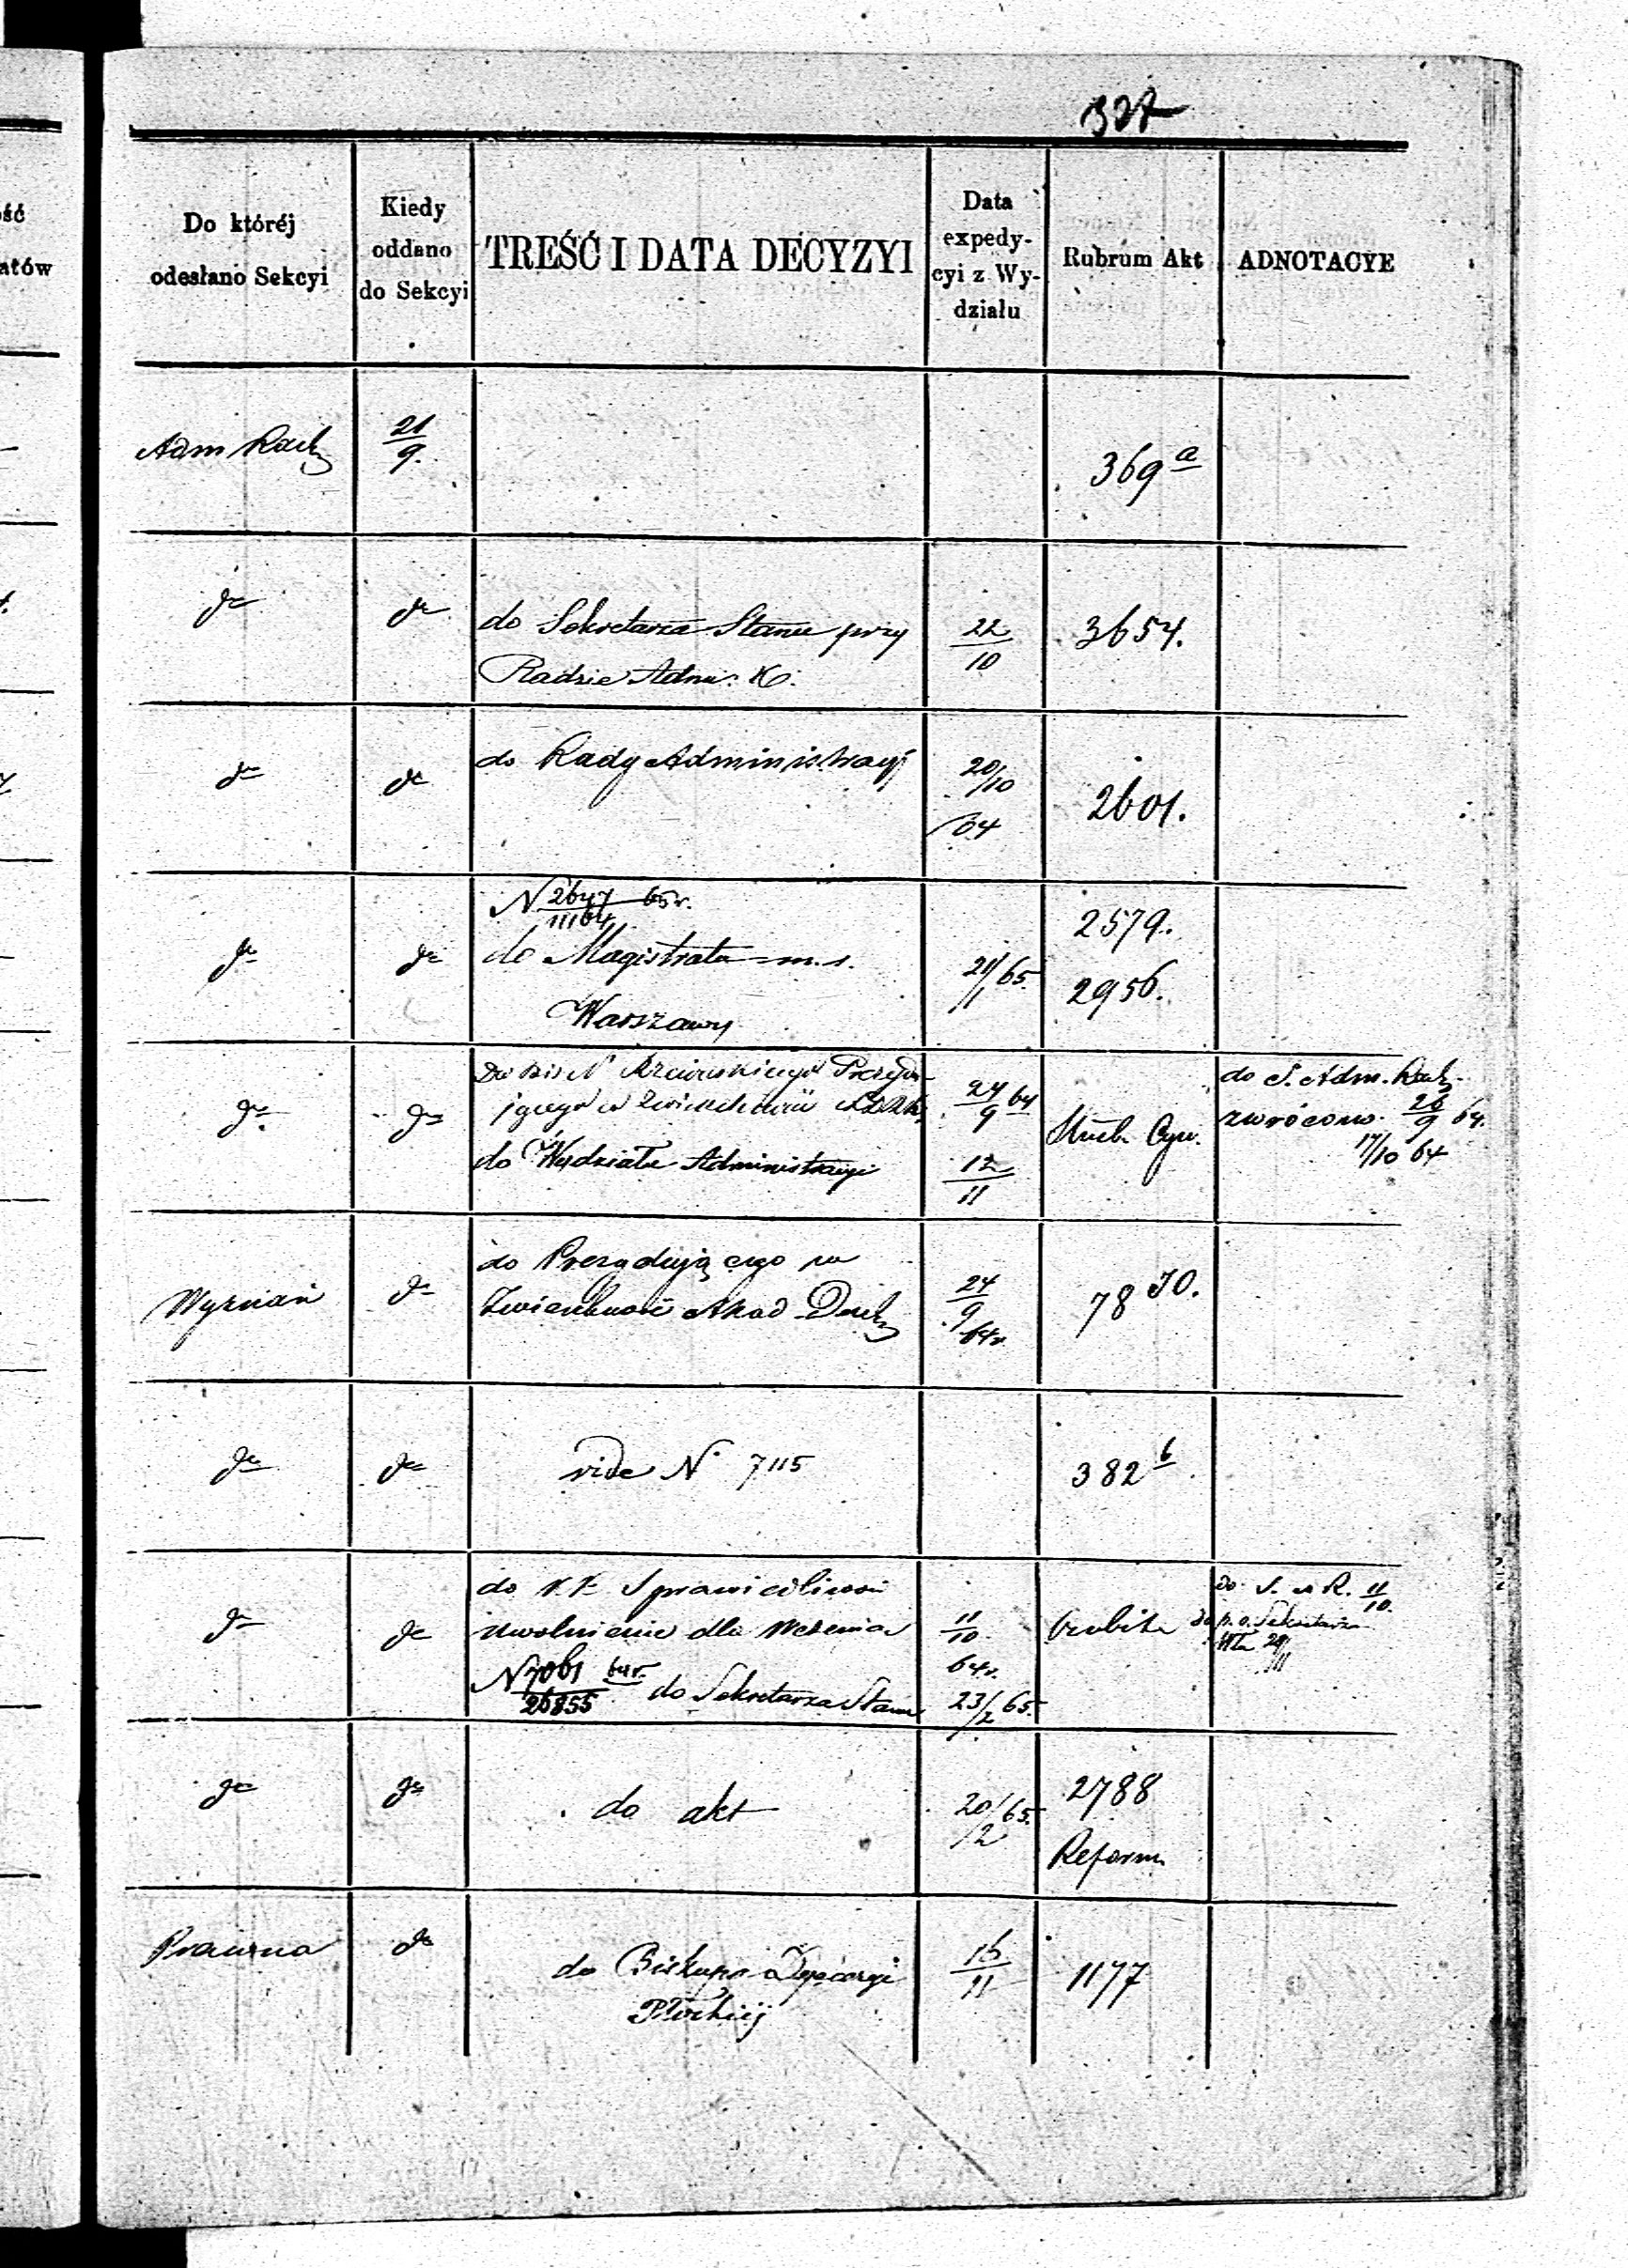 327
ść
atów
Do któréj
odesłano Sekcyi
Kiedy
oddano
do Sekcyi
TREŚĆ I DATA DECYZYI
Data
expedy-
cyi z Wy-
działu
Rubrum Akt
ADNOTACYE
Adm Rach
21/9.
369 a
do
do
do Sekretarza Stanu przy
Radzie Adm: K:
22/10
3654.
do
do
do Rady Administracyj
20/10
64
2601.
do
do
N 2647/11164 65r.
do Magistratu m. s.
Warszawy
21/1 65.
2579.
2956.
do
do
do Wydziału Administracyi
24/9 64
12/11
do S. Adm. Rach.
zwrócono 26/9 64.
17/10 64
Wyznań
do
do Prezydującego w
Akad Duch
24/9
64r.
78 30.
do
do
vide N 7115
382 b
do
do
do Sprawiedliwości
uwolnienie dla
N 7061/26855 64r. do Sekretarza Stanu
11/10
64r.
23/2 65.
do S. R. 11/10.
p. o. Sekretarza
do
do
do akt
20/2 65.
2788
Reform
Prawna
do
do Biskupa Dyecezyi
Płockiéj
16/11
1177